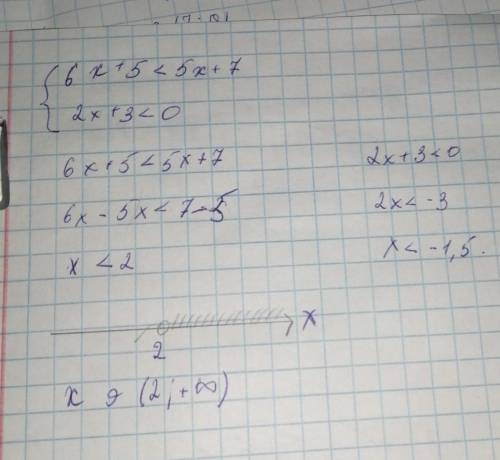 { 6x+5<5x+7
2x+3<0
6x+5<5x+7 2x+3<0
6x-5x<7-5 2x<-3
x<2 x<-1,5.
x
2
x э (2;+∞)